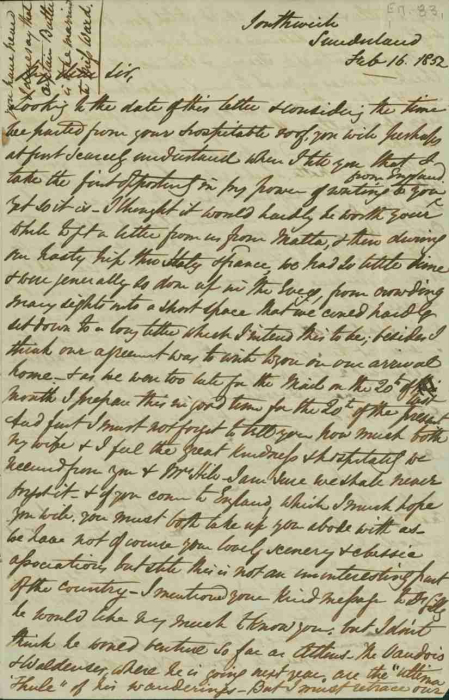 En. 33.
Southwick
Sunderland
Feb 16. 1852
you have heard
I dare say that
Captain Butler
is to be married
to Miss Ward.
Sir,
Looking to the date of this letter & considering the time
we parted from your hospitable roof, you will perhaps
at first scarcely understand when I tell you that I
take the first opportunity in my power of writing to you
from England
yet so it is - I thought it would hardly be worth your
while to get a letter from us from Malta, & then during
our hasty trip thro Italy & France, we had so little time
& were generally so done up in the Eveg, from crowding
many sights into a short space that we could hardly
set down to a long letter which I intend this to be; besides I
think our agreement was to write to you on our arrival
home - & as we were too late for the Mail on the 20th of
last
month I prepare this in good time for the 20th of the present
And first I must not forget to tell you how much both
my wife & I feel the great kindness & hospitality we
received from you & Mrs Hill - I am sure we shall never
forget it - & if you come to England, which I much hope
you will, you must both take up your abode with us -
We have not of course your lovely scenery & classic
associations but still this is not an uninteresting part
of the country - I mentioned your kind message to Dr
he would like very much to know you, but I don't
think he would venture so far as Athens. The Vaudois
& Waldenses, where he is going next year, are the "Ultima
Thule" of his wanderings - But I must retrace our